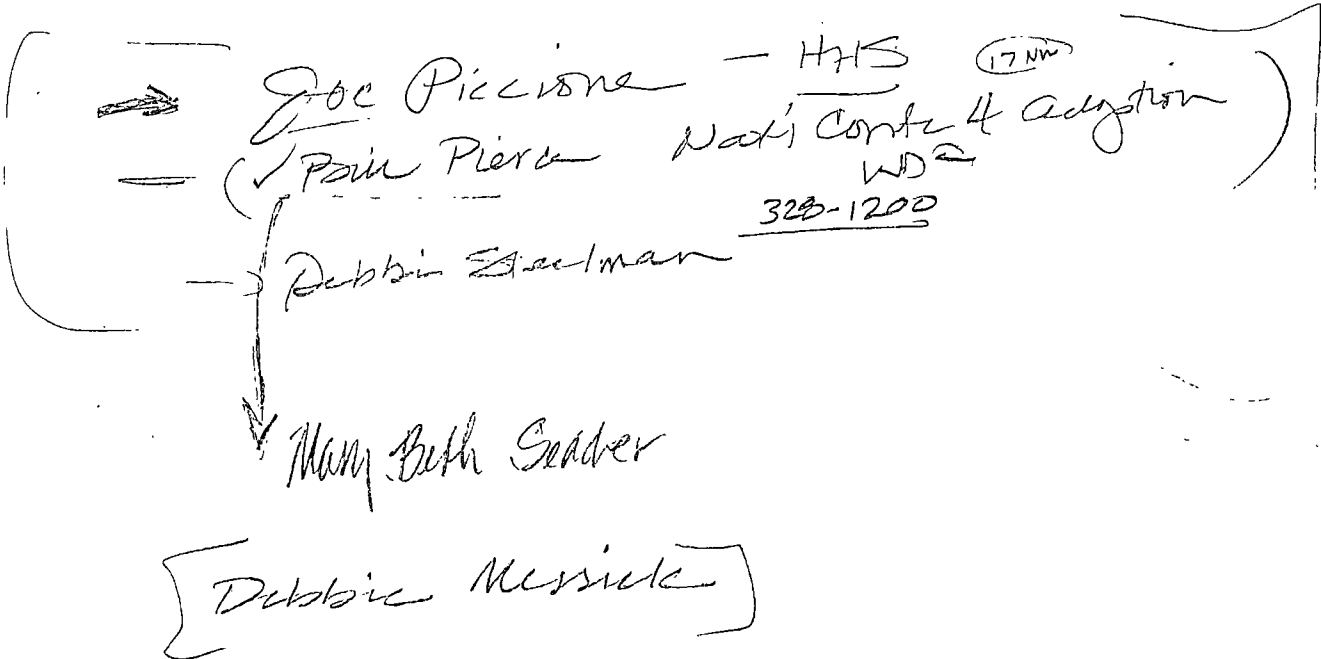 Joe Piccione — HHS
✓ Pam Pierce Nat'l Comte 4 Adoption
328-1200
Debbie Steelman
Mary Beth Seader
[Debbie Messick]